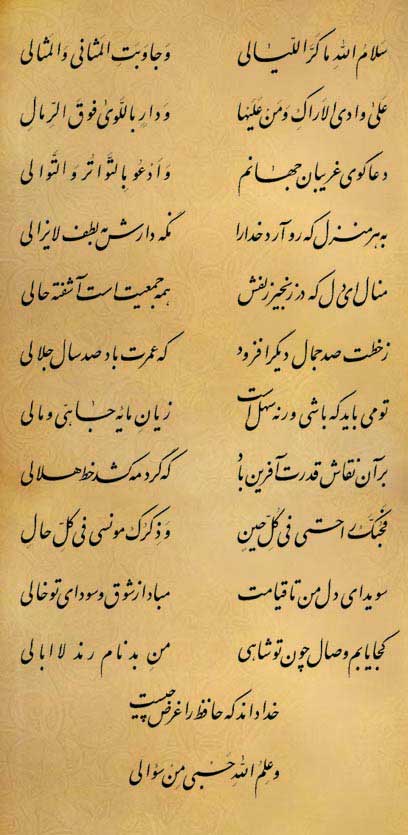 سَلامُ اللهِ ما کَرَّ اللّیالی وَ جاوَبتِ المَثانی وَ المَثالی
عَلیٰ وادی الاَراکِ وَ مَن عَلَیها وَ دارٍ بِاللَّویٰ فَوقَ الرِّمالِ
دعاگوی غریبان جهانم وَ اَدعُو بِالتَّواتُرِ وَ التَّوالی
به هر منزل که رو آرد خدا را نگه دارش به لطف لایزالی
منال ای دل که در زنجیر زلفش همه جمعیت است آشفته حالی
ز خطت صد جمال دیگر افزود که عمرت باد صد سال جلالی
تو می باید که باشی ور نه سهل است زیانِ مایه جاهی و مالی
بر آن نقاش قدرت آفرین باد که گرد مه کشد خط هلالی
فَحُبُّکَ راحتی فی کُلِّ حینٍ وَ ذکرُکَ مونسی فی کُلِّ حالِ
سویدای دل من تا قیامت مباد از شوق و سودای تو خالی
کجا یابم وصال چون تو شاهی منِ بدنام رند لاابالی
خدا داند که حافظ را غرض چیست
وَ عِلمُ اللهِ حَسبی مِن سؤالی